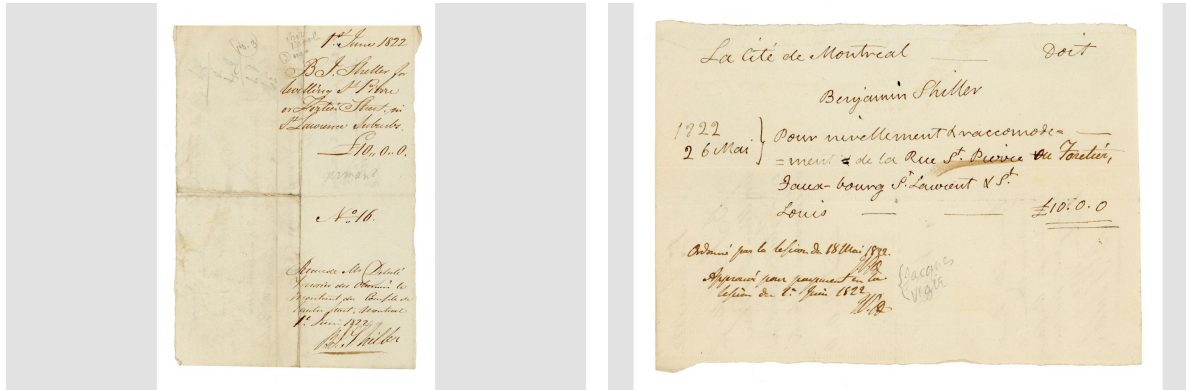 1st June 1822
B. J. Shiller for
levelling St Pierre
or Fortier Street, in
St Lawrence Suburbs.
£10,, 0. 0.
No. 16.
Recu de Mr
montant du Compte de
l'autre part, Montreal
1er Juin 1822
La Cité de Montreal — Doit
Benjamin Shiller
1822
26 Mai } Pour nivellement & raccomode=
=ment de la Rue St. Pierre ou Foretier,
Faux-bourg St. Laurent & St.
Louis — — £10. 0. 0
Ordonné par la Session du 18 Mai 1822.
Approuvé pour payement en la
Session du 1er Juin 1822
{ Jacques
Viger